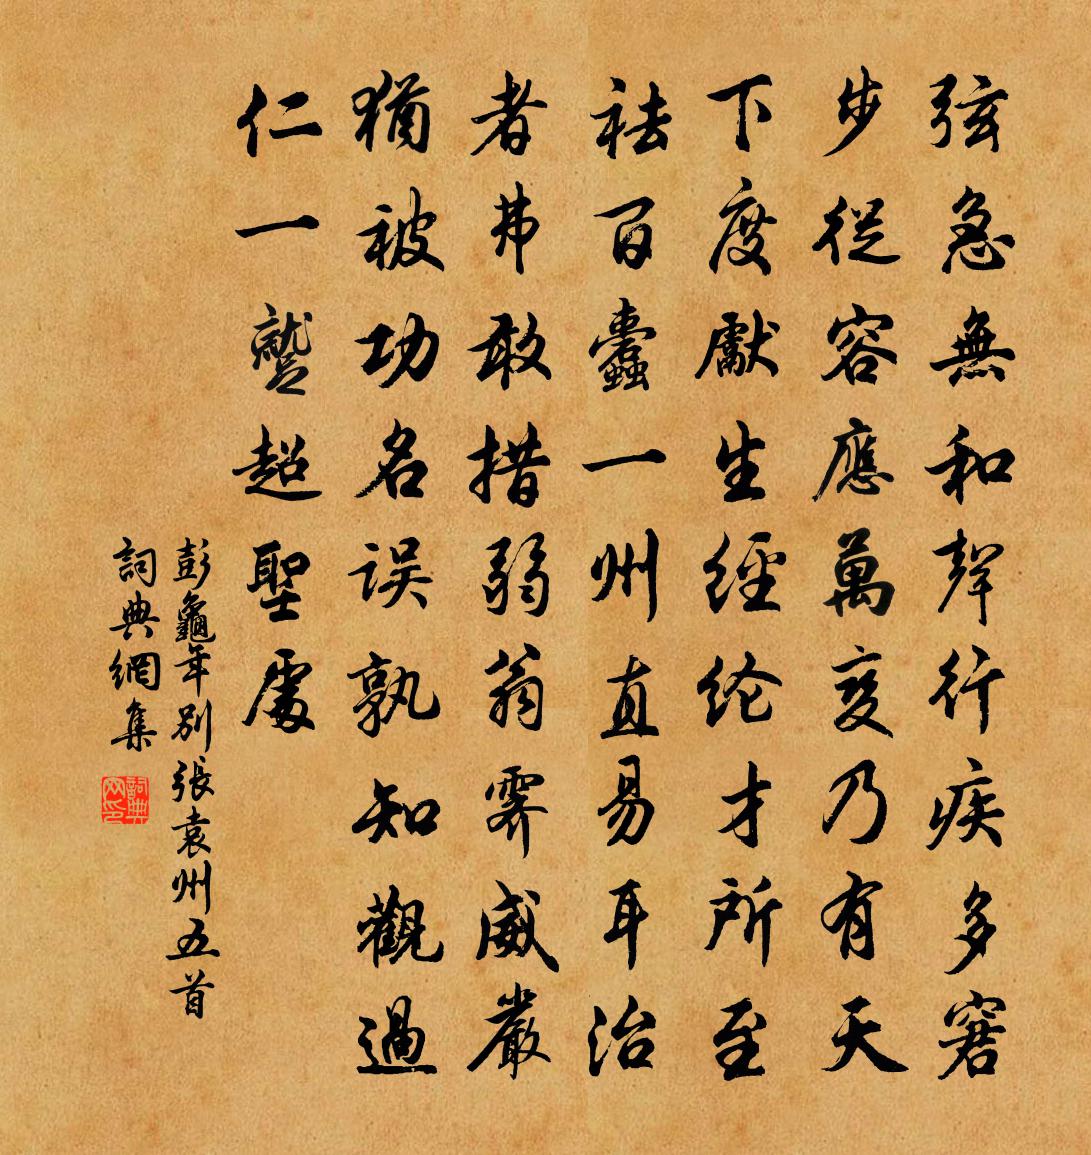 弦急無和聲行疾多窘
步從容應萬變乃有天
下度獻生經纶才所至
祛百蠹一州直易耳治
者弗敢措弱翁霽威嚴
猶被功名误孰知觀過
仁一蹵超聖處
彭龜年別張袁州五首
詞典網集
詞典网印